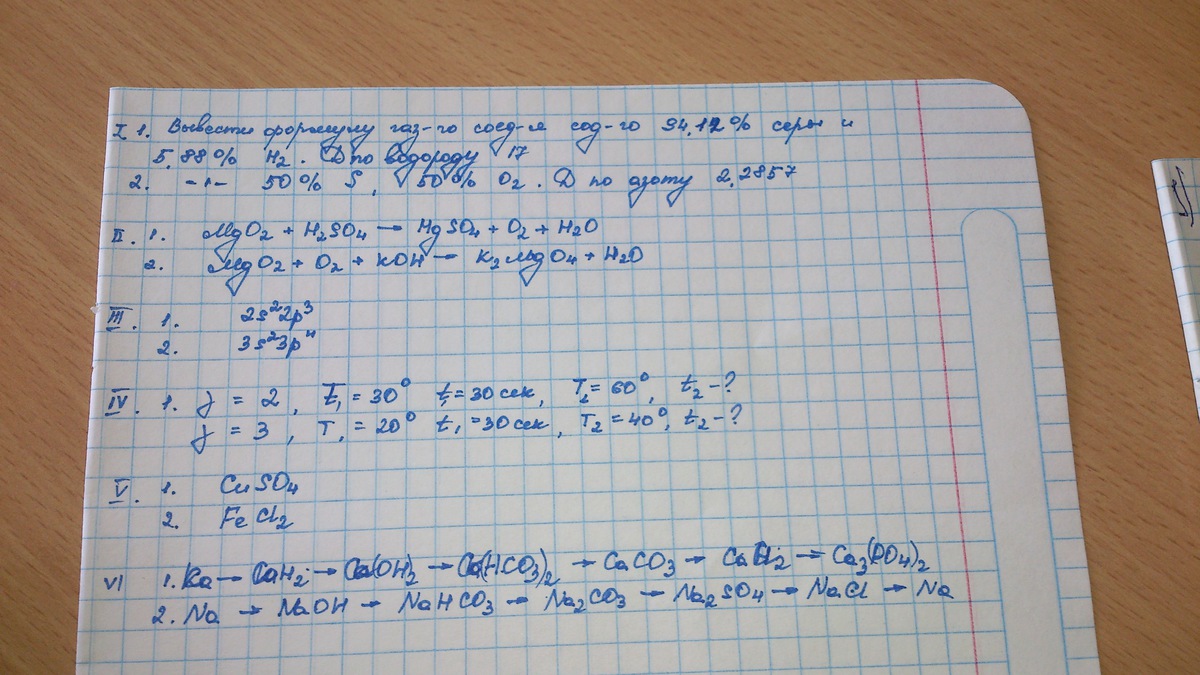 I 1. Вывести формулу газ-го соед-я сод-го 94,12% серы и
5,88% H₂. D по водороду 17
2. -"- 50% S, 50% O₂. D по азоту 2,2857
II. 1. MgO₂ + H₂SO₄ → MgSO₄ + O₂ + H₂O
2. MgO₂ + O₂ + KOH → K₂MgO₄ + H₂O
III. 1. 2s²2p³
2. 3s²3p⁴
IV. 1. γ = 2, T₁ = 30° t₁ = 30 сек, T₂ = 60°, t₂ - ?
γ = 3, T₁ = 20° t₁ = 30 сек, T₂ = 40°, t₂ - ?
V. 1. CuSO₄
2. FeCl₂
VI 1. Ca → CaH₂ → Ca(OH)₂ → Ca(HCO₃)₂ → CaCO₃ → CaCl₂ → Ca₃(PO₄)₂
2. Na → NaOH → NaHCO₃ → Na₂CO₃ → Na₂SO₄ → NaCl → Na